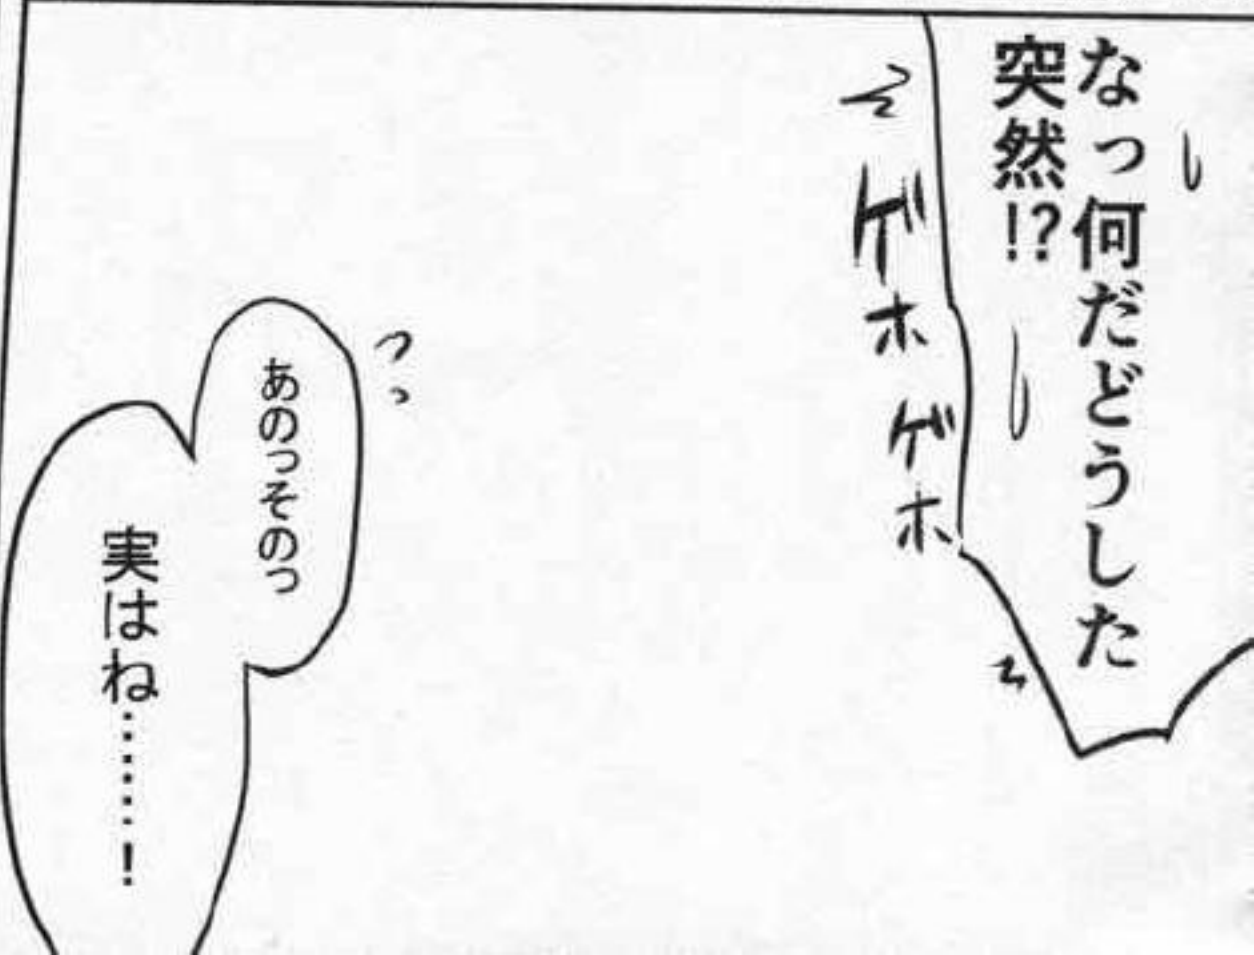 なっ何だどうした
突然!?
ゲホゲホ
あのっそのっ
実はね……!